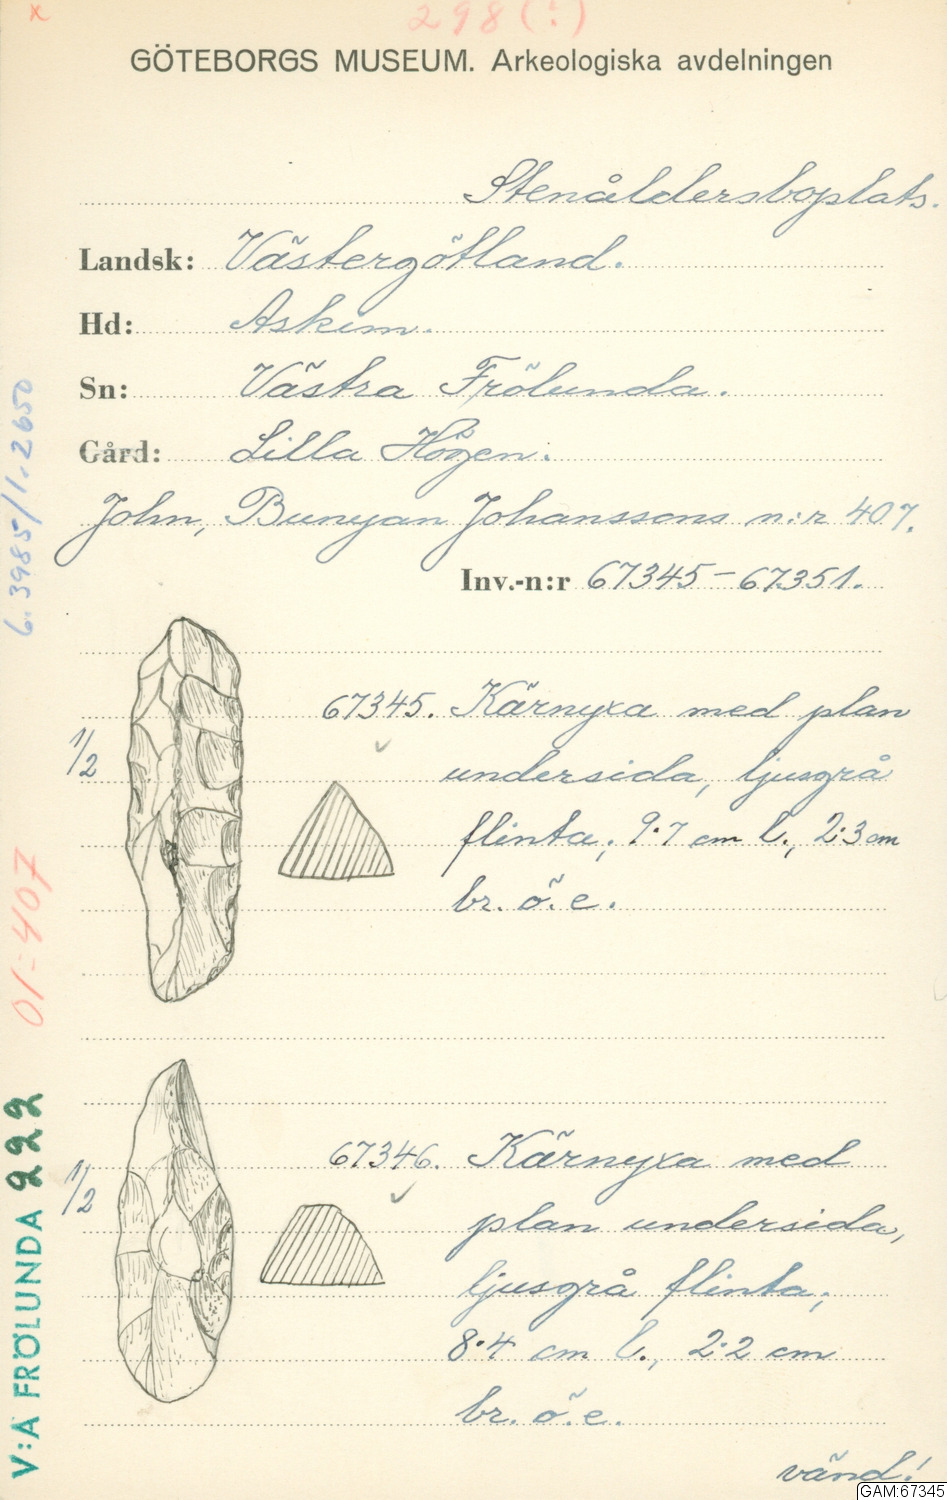 x
298(:)
GÖTEBORGS MUSEUM. Arkeologiska avdelningen
Stenåldersboplats.
Landsk: Västergötland.
Hd: Askim.
Sn: Västra Frölunda.
Gård: Lilla Högen.
John, Bunyan Johanssons n:r 407.
Inv.-n:r 67345-67351.
1/2
67345. Kärnyxa med plan
undersida, ljusgrå
flinta; 9.7 cm l., 2.3 cm
br. ö. e.
1/2
67346. Kärnyxa med
plan undersida,
ljusgrå flinta;
8.4 cm l., 2.2 cm
br. ö. e.
vänd!
6.3985/1.2650
01:407
V:A FRÖLUNDA 222
GAM:67345